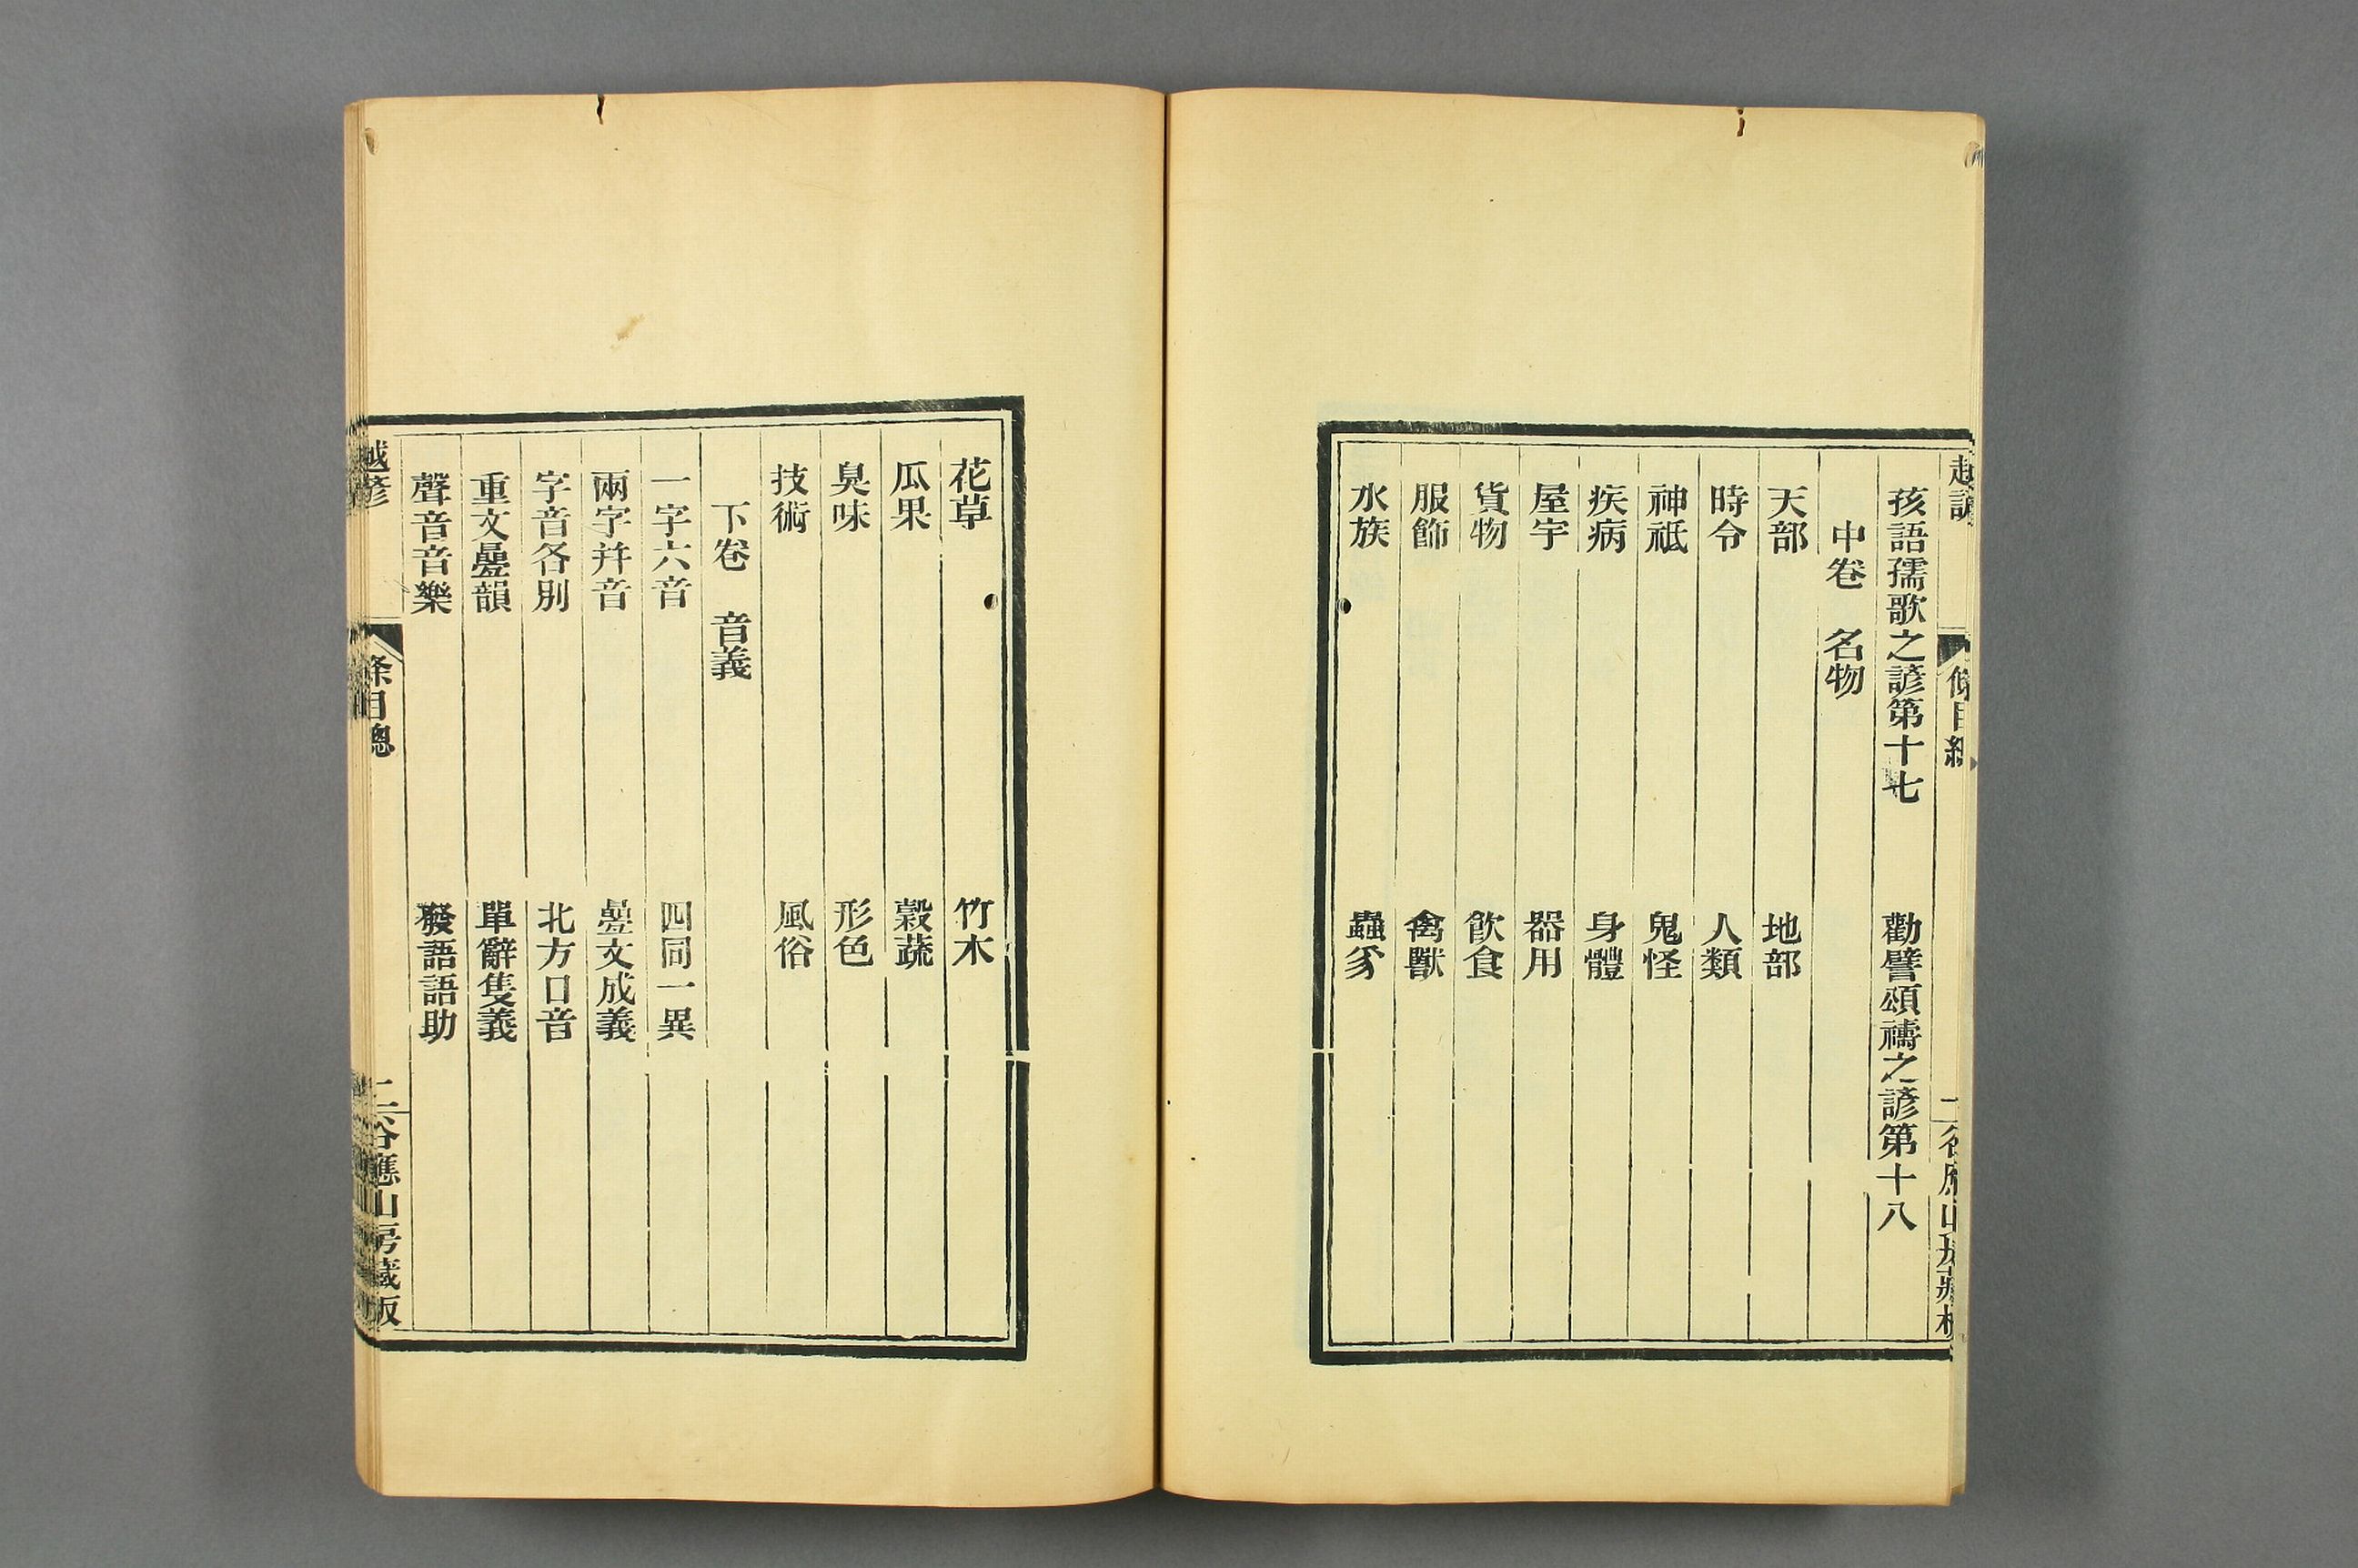 孩語孺歌之諺第十七 勸譬頌禱之諺第十八
中卷 名物
天部 地部
時令 人類
神祇 鬼怪
疾病 身體
屋宇 器用
貨物 飲食
服飾 禽獸
水族 蟲豸
花草 竹木
瓜果 穀蔬
臭味 形色
技術 風俗
下卷 音義
一字六音 四同一異
兩字并音 疊文成義
字音各別 北方口音
重文疊韻 單辭隻義
聲音音樂 發語語助
越諺 條目總 二 谷應山房藏板